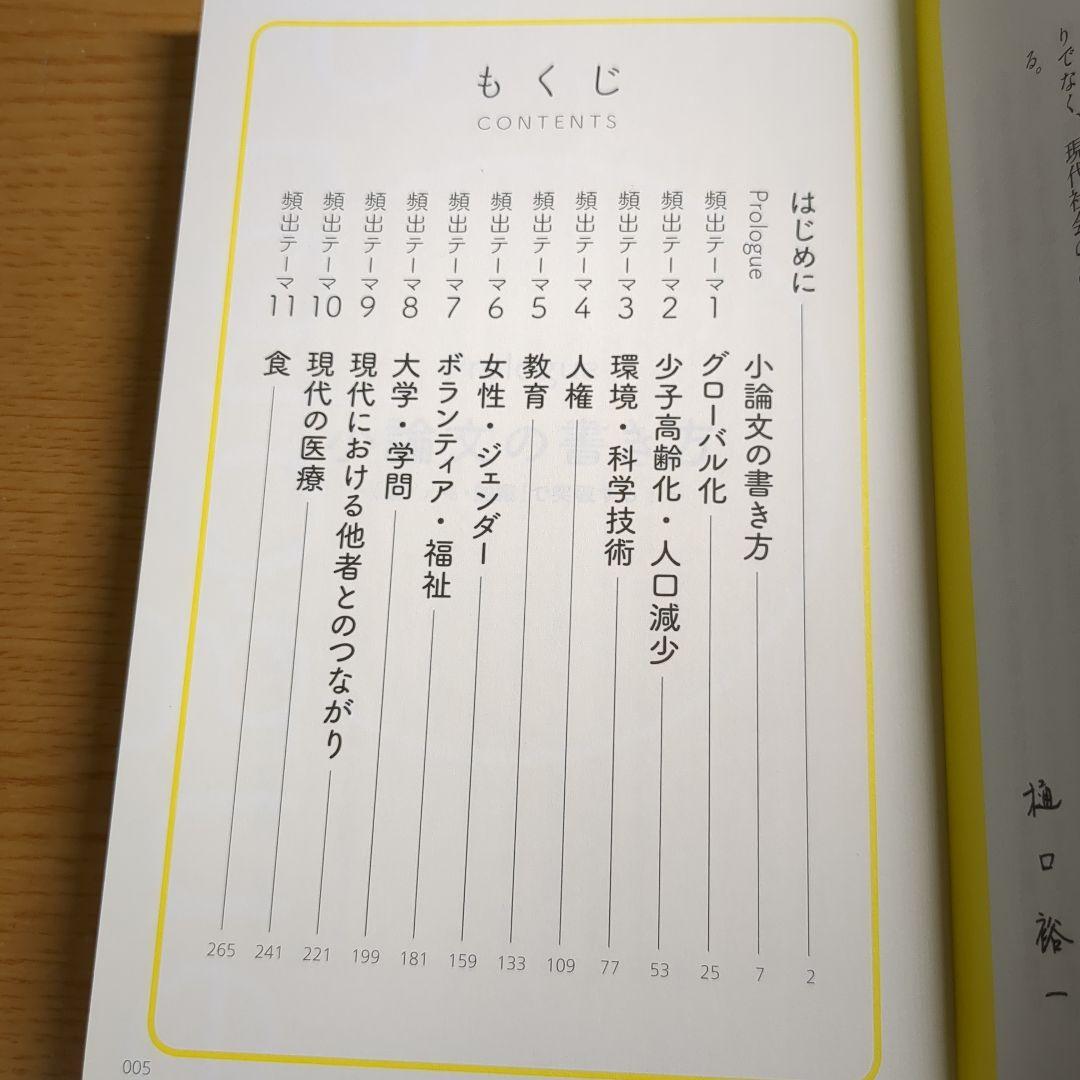 りでなく、現代社会の
る。
樋口裕一
もくじ
CONTENTS
はじめに 2
Prologue 小論文の書き方 7
頻出テーマ1 グローバル化 25
頻出テーマ2 少子高齢化・人口減少 53
頻出テーマ3 環境・科学技術 77
頻出テーマ4 人権 109
頻出テーマ5 教育 133
頻出テーマ6 女性・ジェンダー 159
頻出テーマ7 ボランティア・福祉 181
頻出テーマ8 大学・学問 199
頻出テーマ9 現代における他者とのつながり 221
頻出テーマ10 現代の医療 241
頻出テーマ11 食 265
005